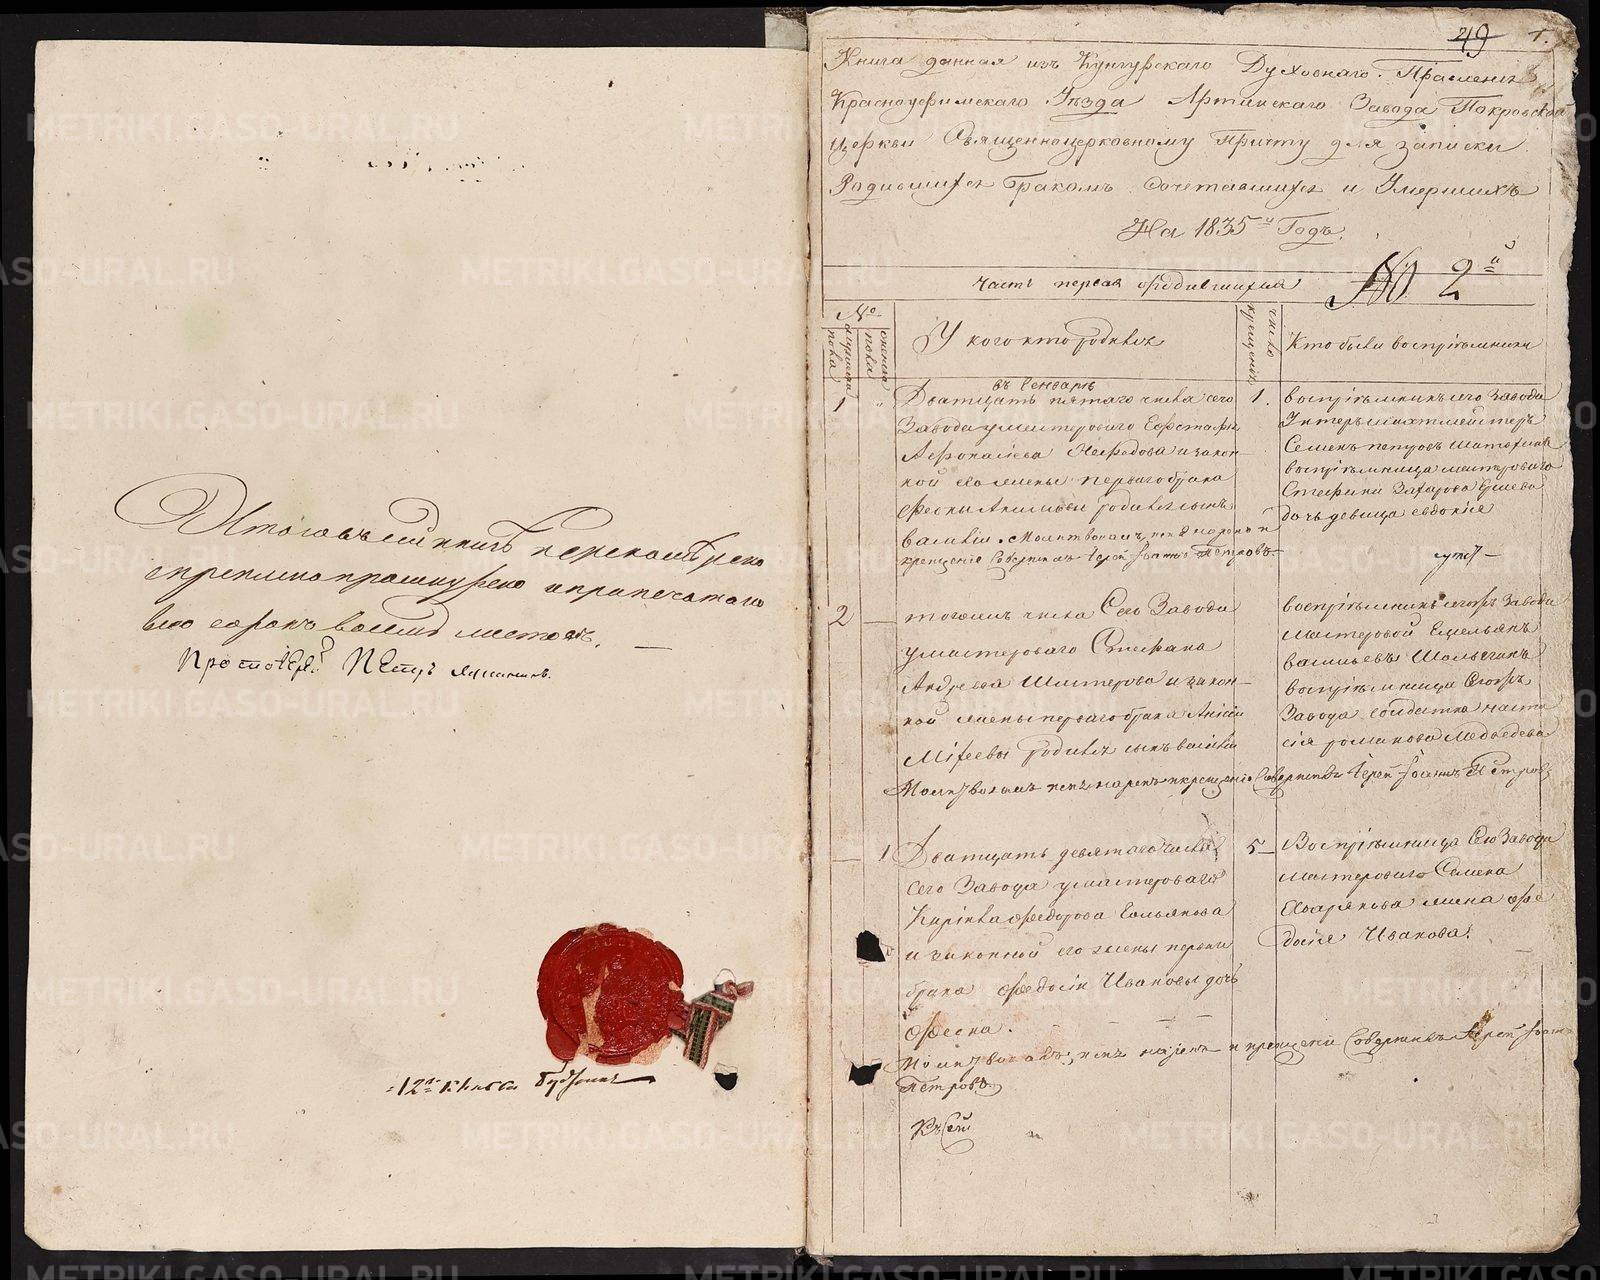 Итого въ сей книгѣ перенумѣрено
скреплено прошнурено и припечатано
всего сорокъ восемь листовъ.
Протоіерей Петръ
12я книга
49 1.
Книга данная изъ Кунгурскаго Духовнаго Правленія
Красноуфимскаго Уѣзда Артинскаго Завода Покровской
церкви Священноцерковному Причту для записки
Родившихся Бракомъ Сочетавшихся и Умершихъ
На 1835й Годъ.
Часть первая о родившихся
№ 2й
№
мужеска пола
женска пола
У кого кто родился
число крещенія
Кто были воспріемники
въ Генварѣ
1 " Дватцать пятаго числа сего
Завода у мастероваго Евстафія
Афонасіева Нефедова и закон-
ной его жены перваго брака
Феклы Акимовы родился сынъ
Василій. Молитвовалъ, имя нарекъ и
крещеніе Совершилъ Іерей Іоаннъ Петровъ
1.
воспріемникъ сего Завода
Унтеръ шихтмейстеръ
Семенъ Петровъ
воспріемница мастероваго
Стефана Захарова
дочь девица Евдокія
2 — тогожъ числа Сего Завода
у мастероваго Стефана
Андреева Шастерова и закон-
ной жены перваго брака Анисіи
Міхеевы родился сынъ Василій
Молитвовалъ имя нарекъ и крещеніе Совершилъ Іерей Іоаннъ Петровъ
воспріемникъ сегожъ Завода
мастеровой Емельянъ
Васильевъ
воспріемница Сегожъ
Завода солдатка Наста
сія Романова Медведева
— 1 Дватцать девятаго числа
сего Завода у мастероваго
Кирила Федорова
и законной его жены перваго
брака Федосіи Ивановы дочь
Фекла.
Молитвовалъ, имя нарекъ и крещеніе Совершилъ Іерей Іоаннъ
Петровъ
5 —
Воспріемница Сего Завода
мастероваго Семена
жена Фе
досія Иванова.
METRIKI.GASO-URAL.RU